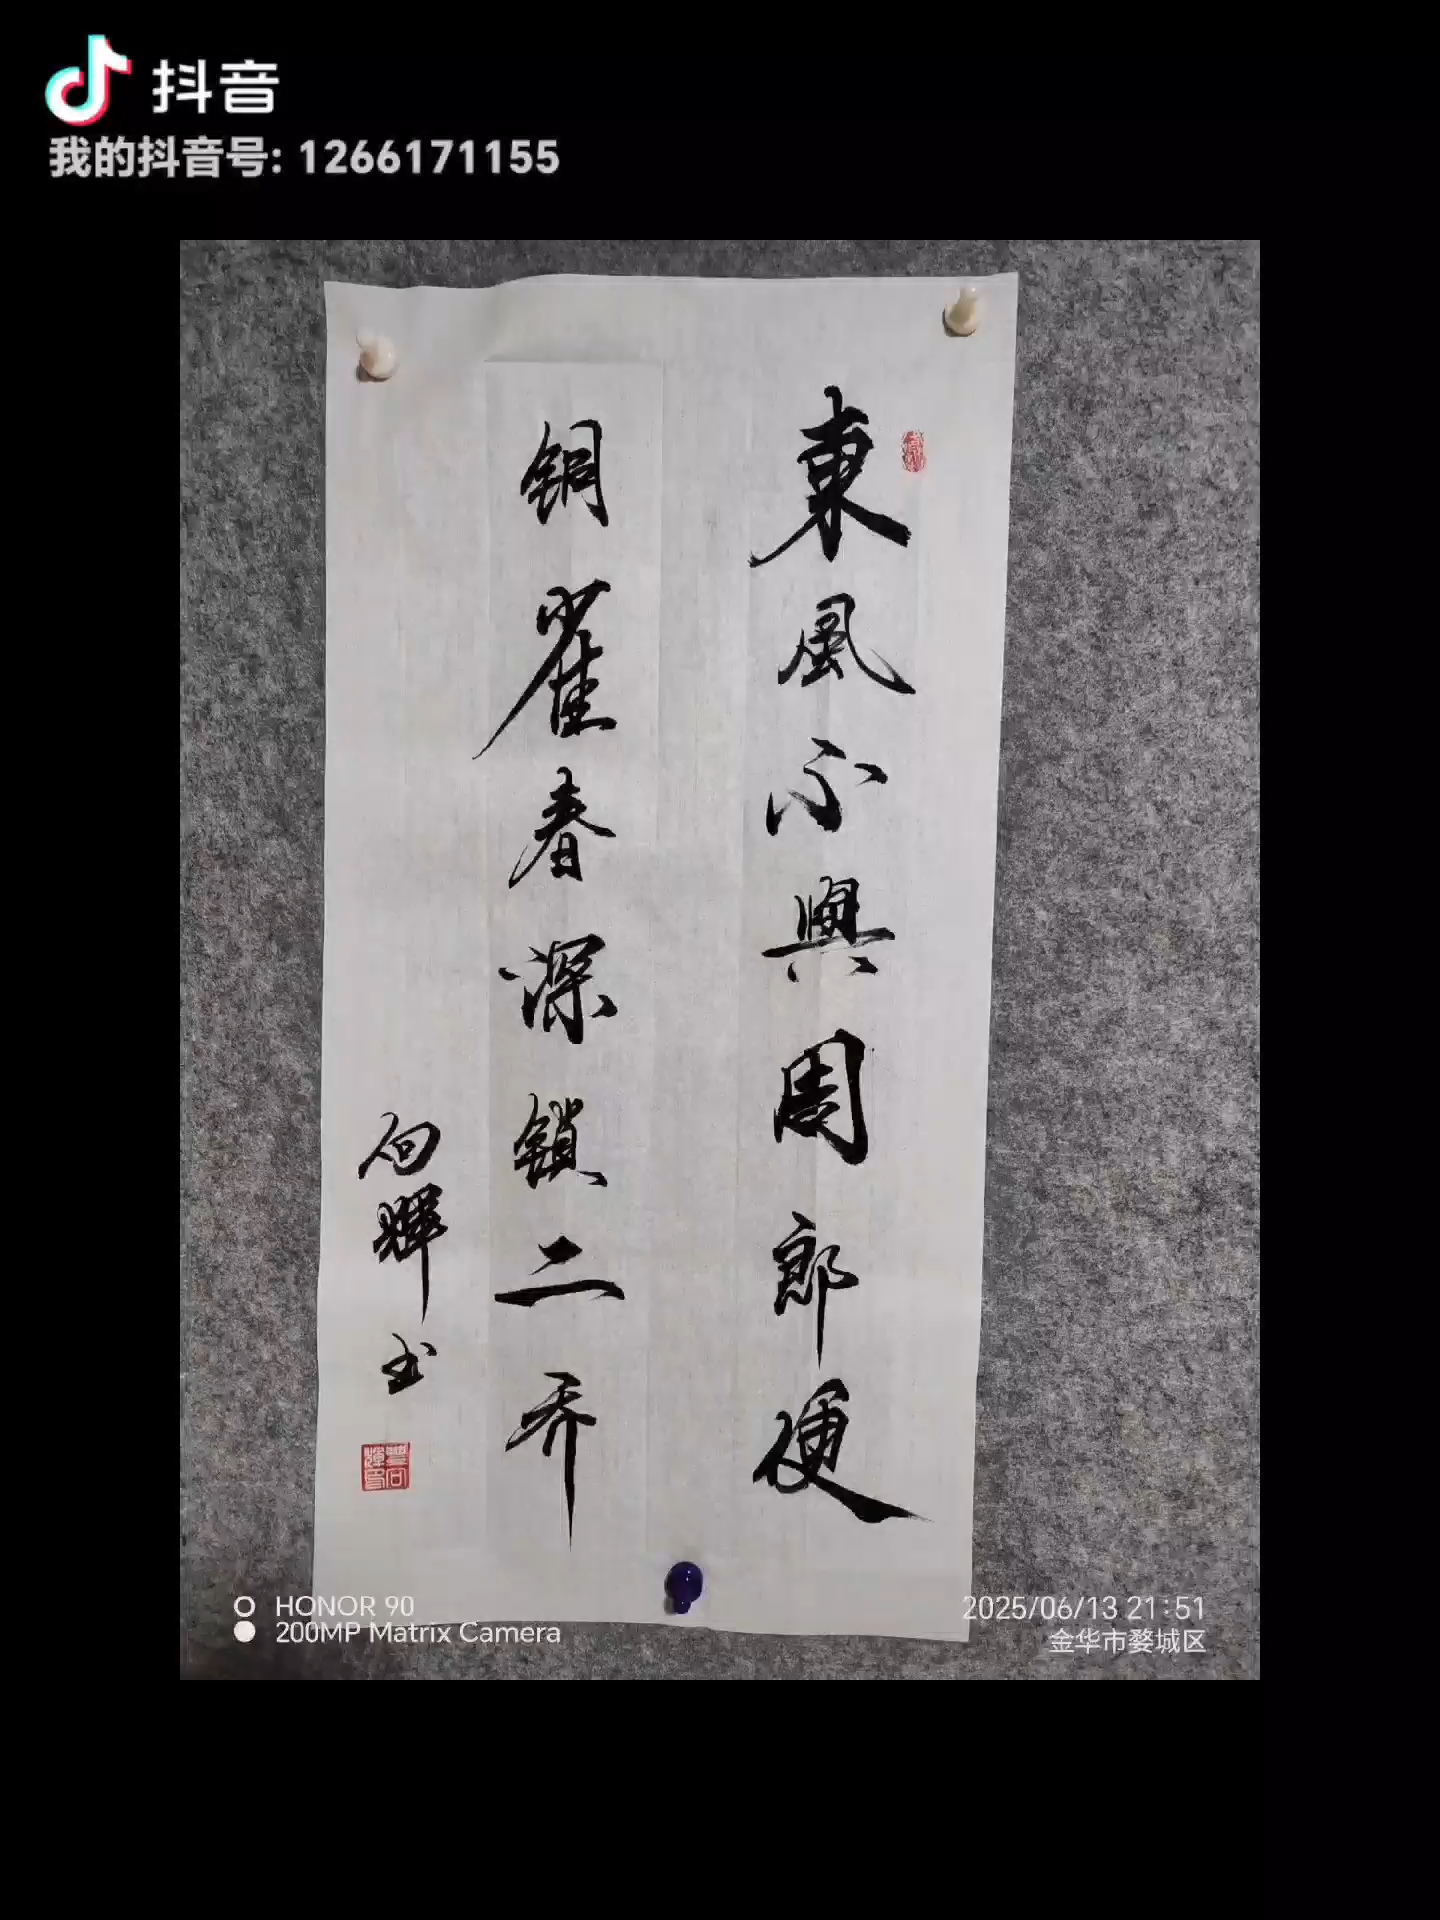 抖音
我的抖音号: 1266171155
東風不與周郎便
铜雀春深锁二乔
向輝书
HONOR 90
200MP Matrix Camera
2025/06/13 21:51
金华市婺城区